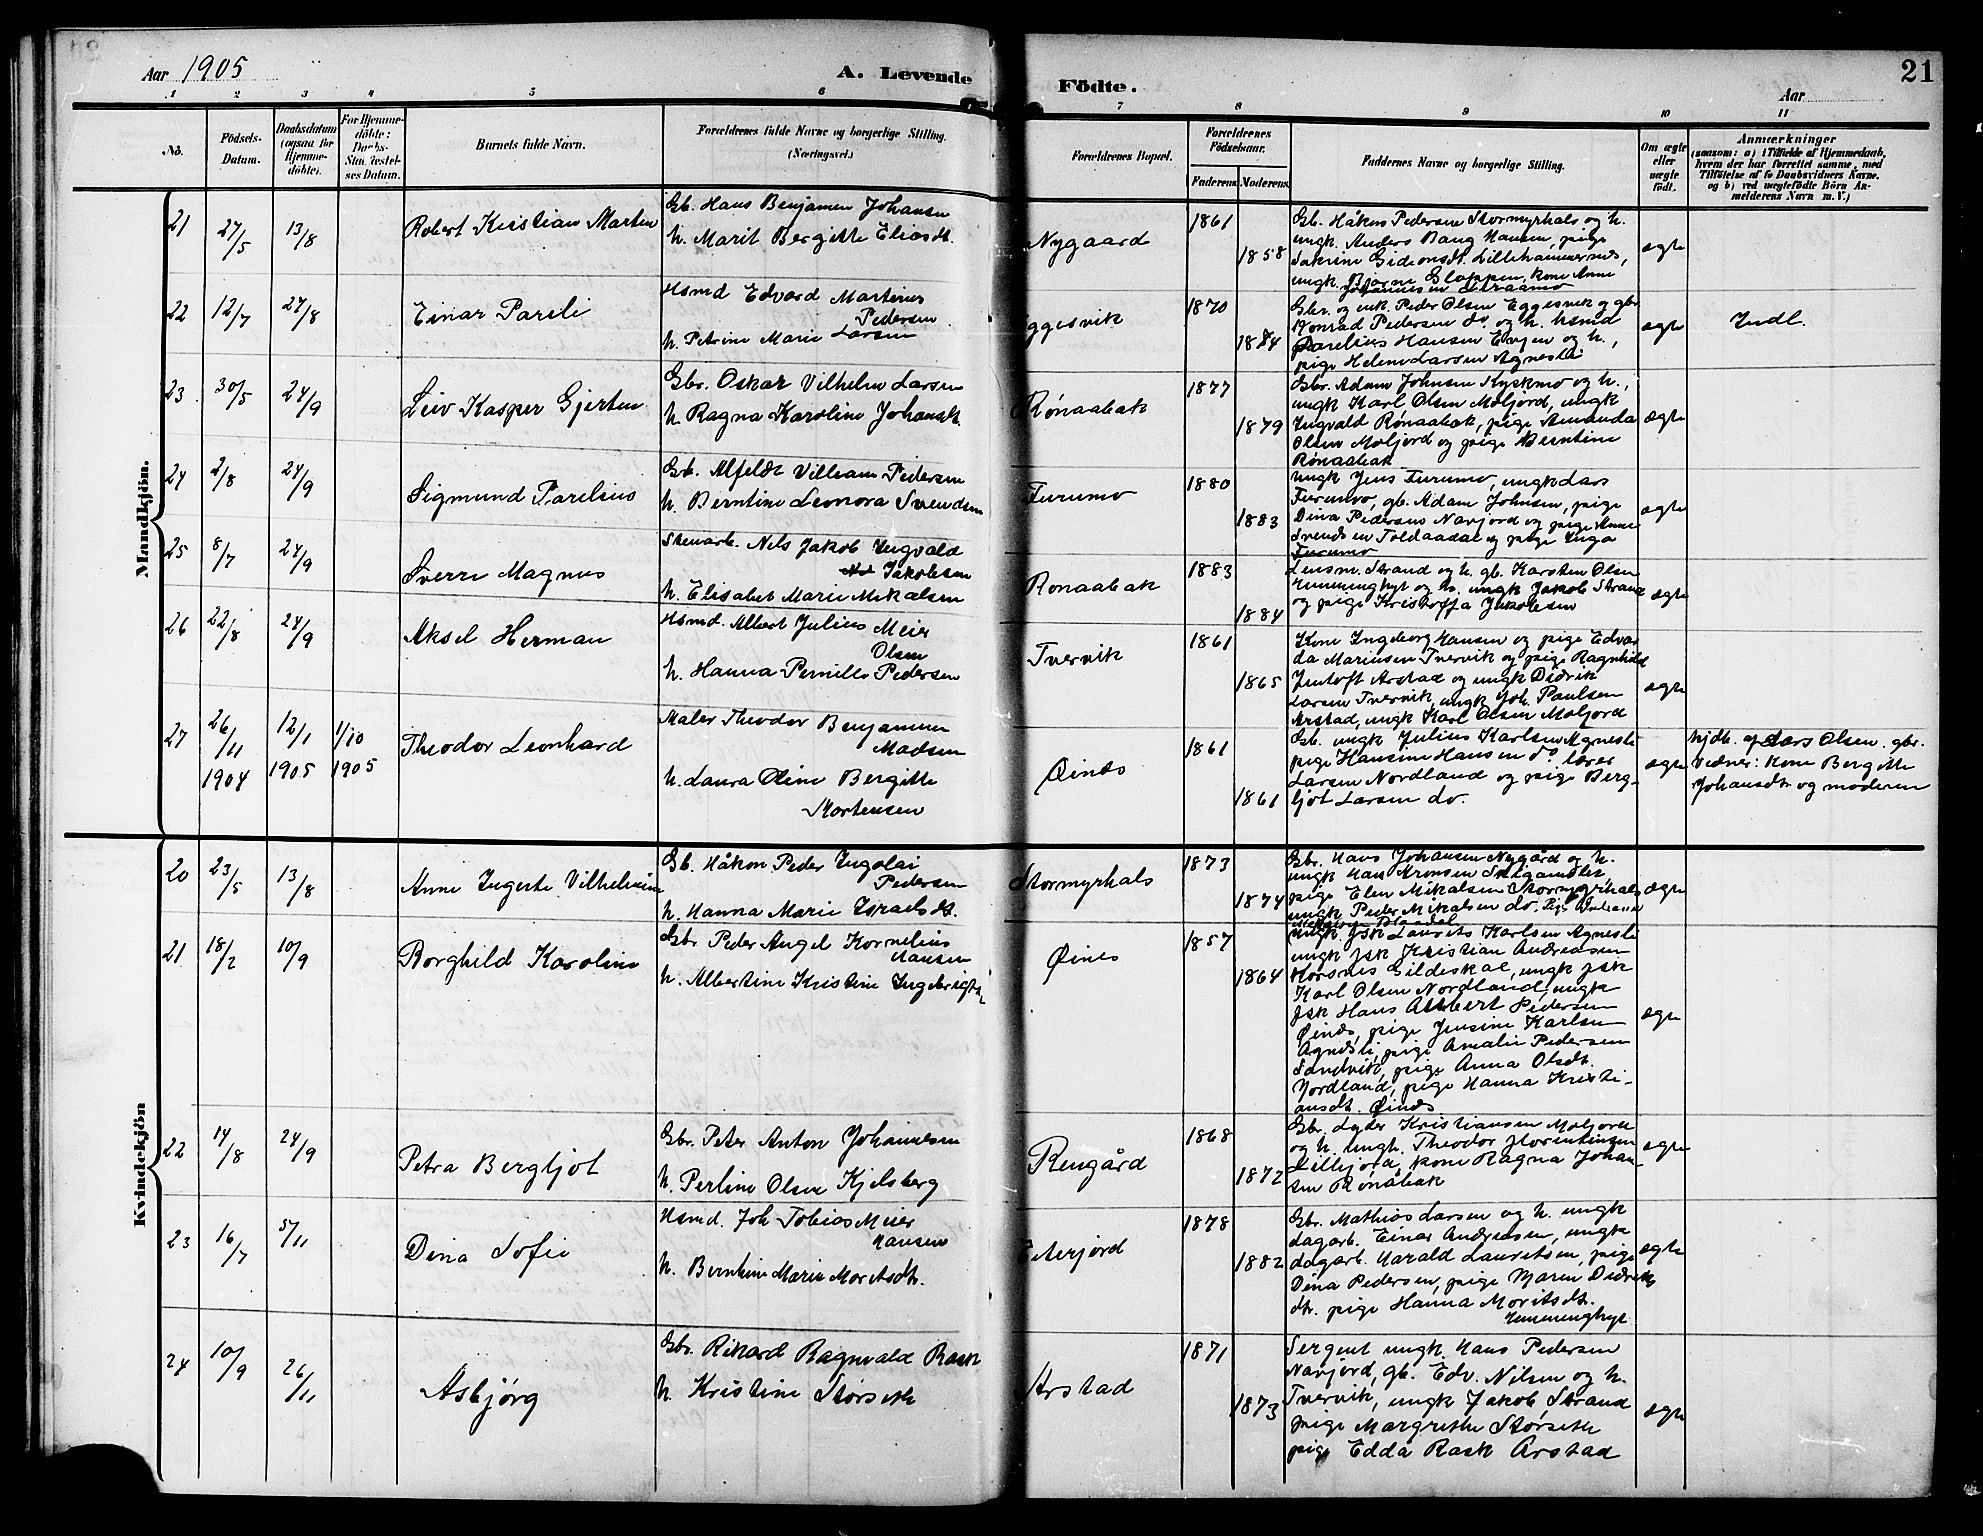 21
Aar 1905
A. Levende
Födte.
Aar
1 2 3 4 5 6 7 8 9 10 11
No.
Födsels-
Datum.
Daabsdatum
(ogsaa for
Hjemme-
döbte).
For Hjemme-
döbte:
Daabs-
Stadfæstel-
ses Datum.
Barnets fulde Navn.
Forældrenes fulde Navne og borgerlige Stilling.
(Næringsvei.)
Forældrenes Bopæl.
Forældrenes
Födselsaar.
Faderens. Moderens.
Faddernes Navne og borgerlige Stilling.
Om ægte
eller
uægte
födt.
Anmærkninger
(saasom: a) i Tilfælde af Hjemmedaab,
hvem der har forrettet samme, med
Tilföielse af to Daabsvidners Navne,
og b) ved uægtefödte Börn An-
melderens Navn m. V.)
Mandkjön.
21 27/5 13/8 Robert Kristian Martin
Gb. Hans Benjamin Johansen
h. Marit Bergitte Eliasdt.
Nygaard 1861 1858
Gb. Håkon Pedersen Stormyrhals og h.
ungk. Anders Bang Hansen, pige
Sakrine Gideonsdt. Lillehammernes,
ungk. Bjarne Gloppen, kone Anne
Johannesen Straamo
ægte
22 12/7 27/8 Einar Pareli
Hsmd Edvard Martinus
Pedersen
h. Petrine Marie Larsen
Eggesvik 1870 1884
Gbr. og enk. Peder Olsen Eggesvik og gbr
Konrad Pedersen do og h. hsmd
Parelius Hansen Evjen og h.,
pige Helene Larsen Agnesli
ægte Indl.
23 30/5 24/9 Leiv Kasper Gjerten
Gbr. Oskar Vilhelm Larsen
h. Ragna Karoline Johansdt.
Rønaabak 1877 1879
Gbr. Adam Johnsen Kyskmo og h.,
ungk Karl Olsen Moljord, ungk
Ingvald Rønaabak, pige Amanda
Olsen Moljord og pige Berntine
Rønaabak
ægte
24 2/8 24/9 Sigmund Parelius
Gb. Alfeldt Villiam Pedersen
h. Berntine Leonora Svendsen
Furumo 1880 1883
ungk Jens Furumo, ungk Lars
Furumo, gb. Adam Johnsen, pige
Dina Pedersen Navjord og pige Anne
Svendsen Toldaadal og pige Inga
Furumo
ægte
25 8/7 24/9 Sverre Magnus
Stenarb. Nils Jakob Ingvald
Jakobsen
h. Elisabet Marie Mikalsen
Rønaabak 1883 1884
Lensm. Strand og h. gb. Karsten Olsen
Hemminghyt og h. ungk Jakob Strand
og pige Kristoffa Jakobsen
ægte
26 22/8 24/9 Aksel Herman
Hsmd. Albert Julius Meier
Olsen
h. Hanna Pernille Pedersen
Tvervik 1861 1865
Kone Ingeborg Hansen og pige Edvar
da Mariusen Tvervik og pige Ragnhild
Jentoft Arstad og ungk Didrik
Larsen Tvervik, ungk Joh. Paulsen
Arstad, ungk Karl Olsen Moljord
ægte
27 26/11 1904 12/1 1905 1/10 1905 Theodor Leonhard
Maler Theodor Benjamin
Madsen
h. Laura Oline Bergitte
Mortensen
Øines 1861 1861
Gb. ungk Julius Karlsen Agnesli
pige Hansine Hansen do. lærer
Larsen Nordland og pige Berg-
ljot Larsen do.
ægte
hjdb. af Lars Olsen. gbr.
Vidner: Kone Bergitte
Johansdt og moderen
Kvindekjön
20 23/5 13/8 Anne Ingerte Vilhelmine
Gb. Håkon Peder Ingolai
Pedersen
h. Hanna Marie Israelsdt.
Stormyrhals 1873 1874
Gbr. Hans Johansen Nygård og h.
ungk. Hans Aronsen
pige Elen Mikalsen Stormyrhals
ungk Peder Mikalsen do. Pige
ægte
21 18/2 10/9 Borghild Karoline
Gbr Peder Angel Kornelius
Hansen
h. Albertine Kristine Ingebrigtsen
Øines 1857 1864
ungk. fsk Laurits Karlsen Agnesli
ungk fsk Kristian Andreasen
Horsnes Gildeskal, ungk fsk
Karl Olsen Nordland, ungk
fsk Hans Albert Pedersen
Øines, pige Jensine Karlsen
Agnesli, pige Amalie Pedersen
Sandvik, pige Anna Olsdt.
Nordland, pige Hanna Kristi-
ansdt. Øines
ægte
22 14/8 24/9 Petra Bergljot
Gbr. Peter Anton Johannesen
h. Perline Olsen Kjelsberg
Rengård 1868 1872
Gbr. Lyder Kristiansen Moljord
og h. ungk. Theodor Florentinsen
Lilljord, kone Ragna Johan-
sen Rønabak
ægte
23 16/7 5/11 Dina Sofie
Hsmd. Joh Tobias Meier
Hansen
h. Berntine Marie Moritsdt.
Eterjord 1878 1882
Gbr. Mathias Larsen og h. ungk
dagarb. Einar Andreasen, ungk
dagarb. Harald Lauritsen, pige
Dina Pedersen, pige Maren Didriks
dt. pige Hanna Moritsdt.
Hemminghyt
ægte
24 10/9 26/11 Asbjørg
Gbr. Rikard Ragnvald Rask
h. Kristine Størseth
Arstad 1871 1873
Sergent ungk. Hans Pedersen
Navjord, gb. Edv. Nilsen og h.
Tvervik, ungk Jakob Strand
pige Margrethe Størseth
pige Edda Rask Arstad
ægte